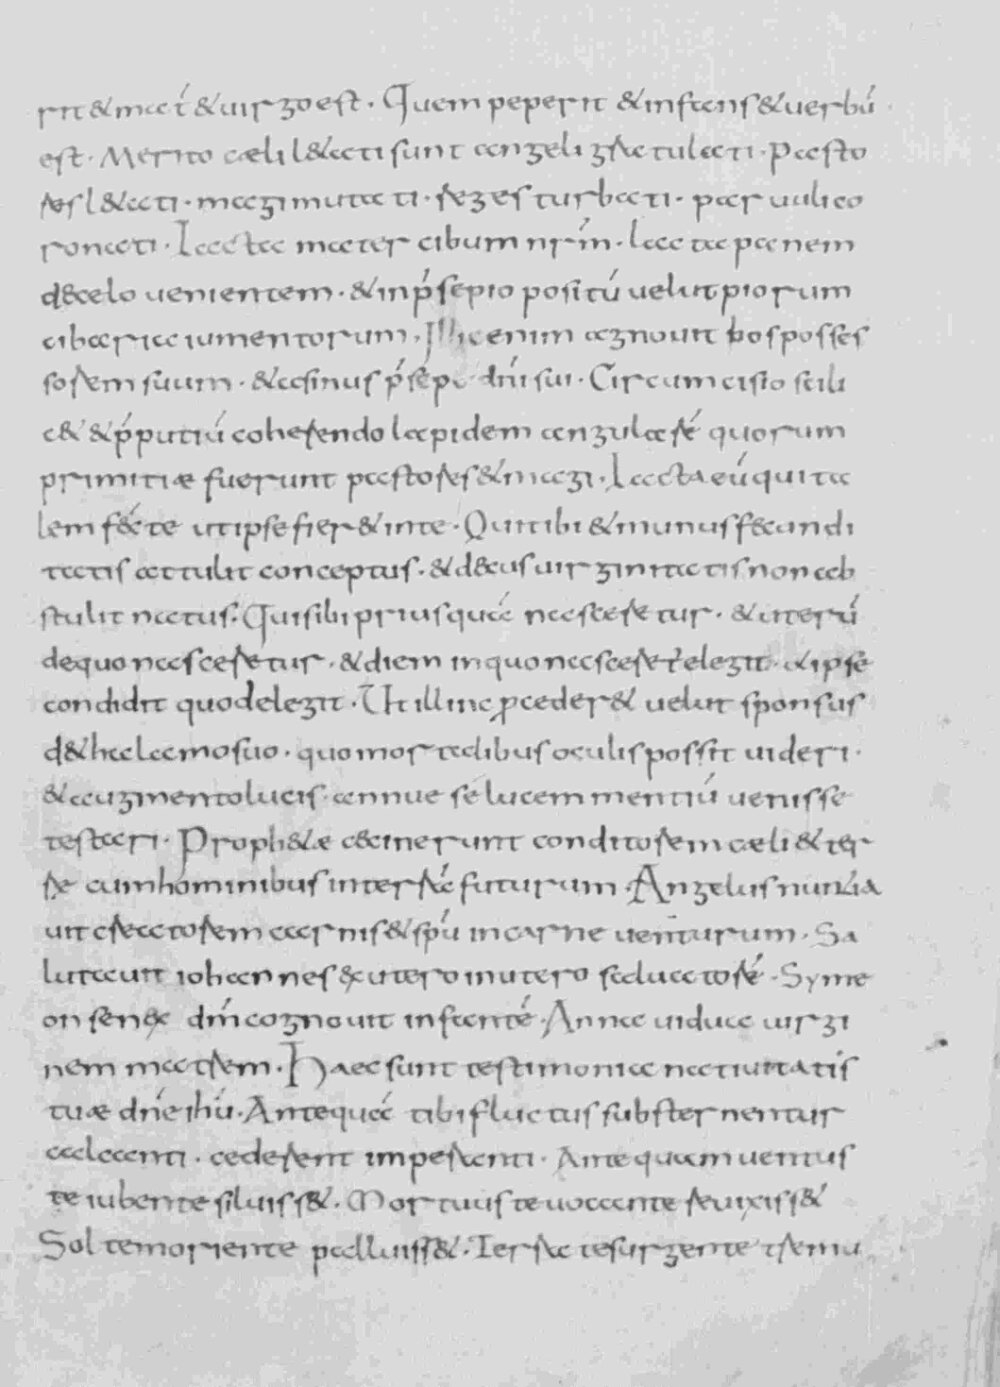 rit & mat́ & uirgo est · Quem peperit & infans & uerbū
est · Merito cæli l&ati sunt angeli gratulati · Pasto
res l&ati · magi mutati · reges turbati · paruuli co
ronati · Lacta mater cibum nrm̄ · lacta panem
de celo uenientem · & in p̄sepio positū uelut piorum
cibaria iumentorum · Illic enim agnouit bos posses
sorem suum · & asinus p̄sepe dn̄i sui · Circumcisio scili
c& & p̄putiū coherendo lapidem angularē quorum
primitiæ fuerunt pastores & magi · Lacta eū qui ta
lem fec̄ te ut ipse fier& in te · Qui tibi & munus fecundi
tatis attulit conceptus · & decus uirginitatis non ab
stulit natus · Qui sibi priusquā nasceretur · & uterū
de quo nasceretur · & diem in quo nascere&̄ elegit · & ipse
condidit quod elegit · Ut illinc proceder& uelut sponsus
de thalamo suo · quo mortalibus oculis possit uideri ·
& augmento lucis annue se lucem mentiū uenisse
testari · Proph&æ cecinerunt conditorem cæli & ter
ræ cum hominibus in terrā futurum · Angelus nuntia
uit creatorem carnis & spū in carne uenturum · Sa
lutauit iohannes ex utero in utero saluatorē · Syme
on senex dm̄ cognouit infantē · Anna uidua uirgi
nem matrem · Haec sunt testimonia natiuitatis
tuæ dn̄e ihū · Antequā tibi fluctus subster nentur
calcanti · cederent imperanti · Ante quam uentus
te iubente siluiss& · Mortuus te uocante reuixiss&
Sol te moriente palluiss& · Terra resurgente tremu